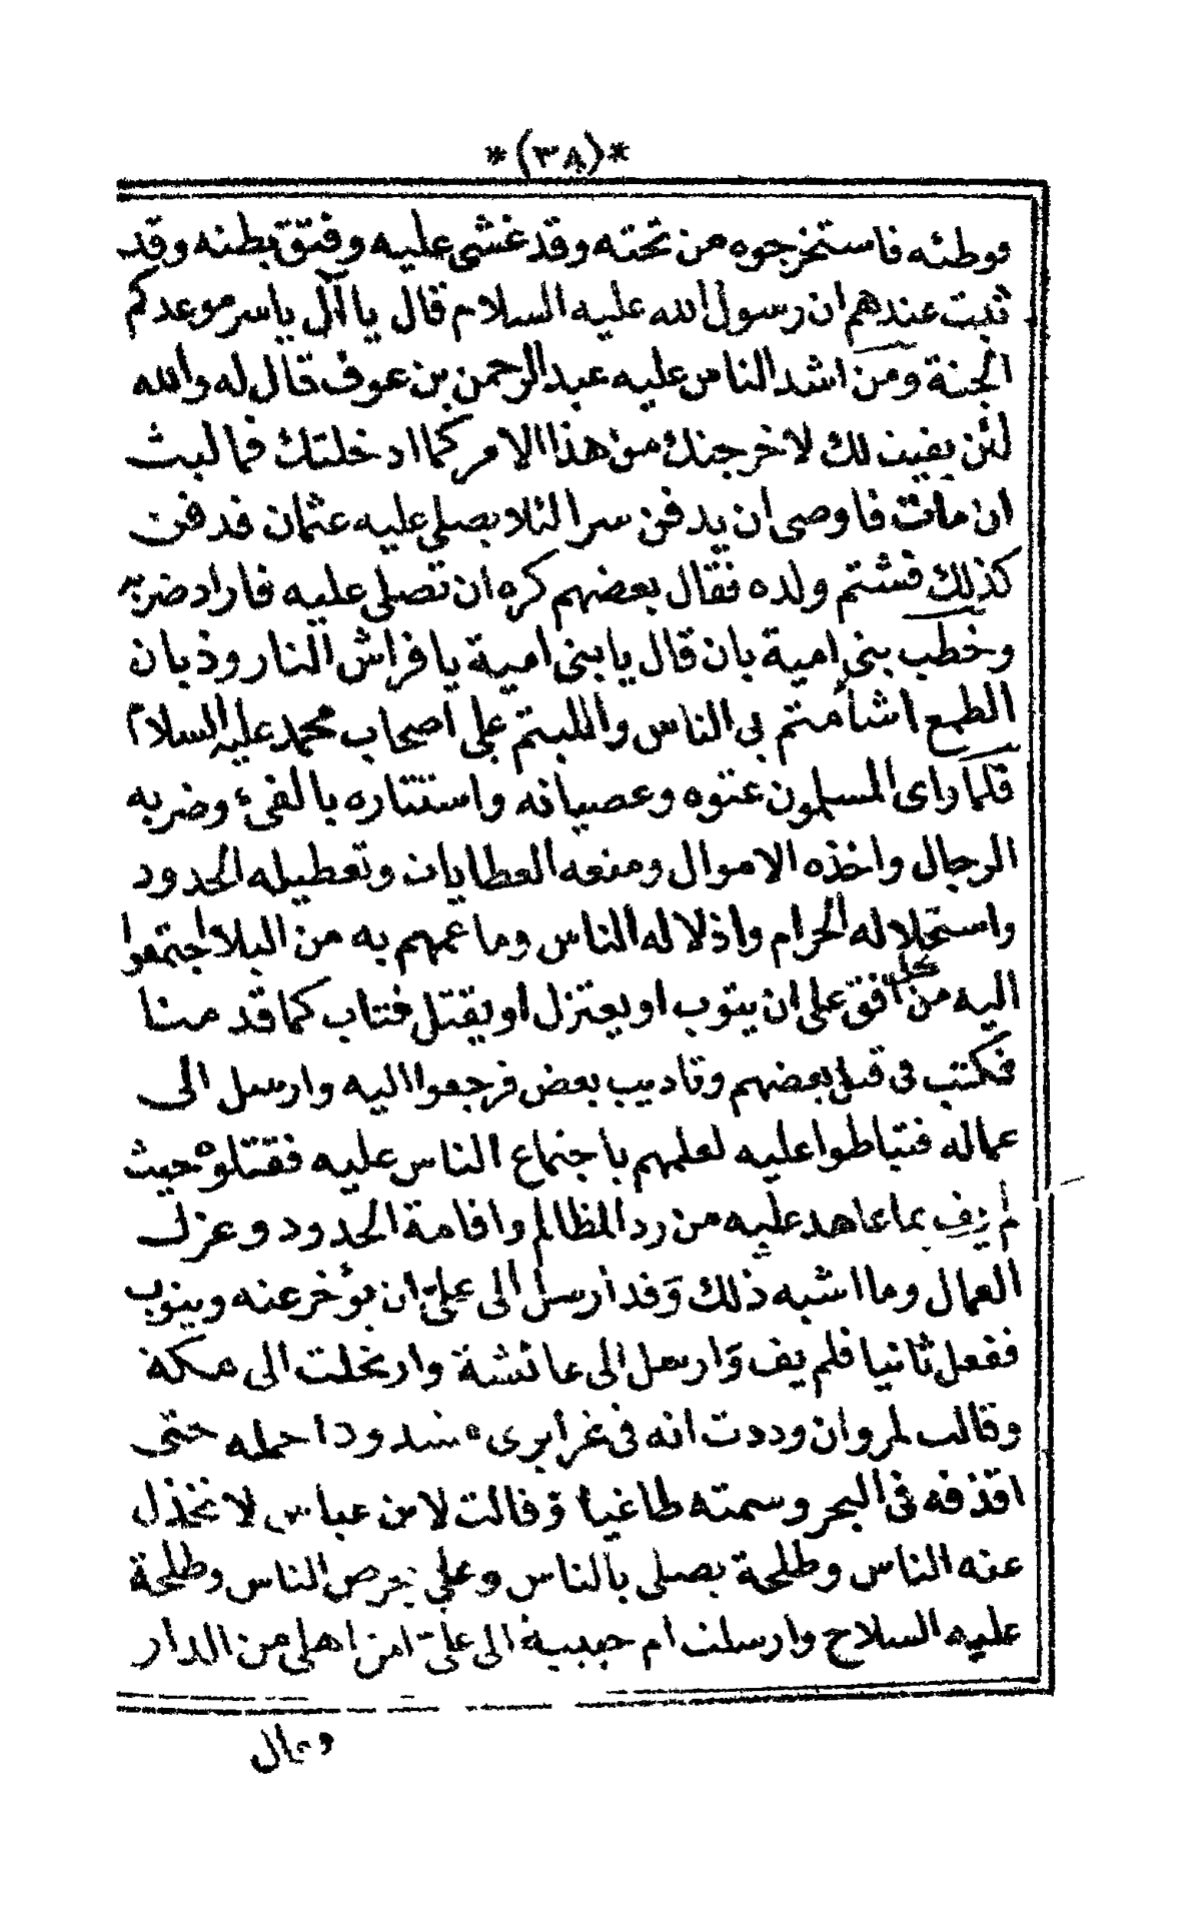 *(٣٨)*
فوطئه فاستخرجوه من تحته وقد غشى عليه وفتق بطنه وقد
ثبت عندهم ان رسول الله عليه السلام قال يا آل ياسر موعدكم
الجنة ومن اشد الناس عليه عبد الرحمن بن عوف قال له والله
لئن بقيت لك لاخرجنك من هذا الامر كما ادخلتك فما لبث
ان مات فاوصى ان يدفن سرا لئلا يصلى عليه عثمان فدفن
كذلك فشتم ولده فقال بعضهم كره ان تصلى عليه فاراد ضربه
وخطب بنى امية بان قال يا بنى امية يا فراش النار وذبان
الطمع اشأمتم بى الناس والبتم على اصحاب محمد عليه السلام
فلما راى المسلمون عتوه وعصيانه واستئثاره بالفىء وضربه
الرجال واخذه الاموال ومنعه العطايات وتعطيله الحدود
واستحلاله الحرام واذلاله الناس وما عمهم به من البلا اجتمعوا
اليه من كل افق على ان يتوب او يعتزل او يقتل فتاب كما قدمنا
فكتب فى قتل بعضهم وتاديب بعض فرجعوا اليه وارسل الى
عماله فتباطوا عليه لعلمهم باجتماع الناس عليه فقتلوه حيث
لم يف بما عاهد عليه من رد المظالم واقامة الحدود وعزل
العمال وما اشبه ذلك وقد ارسل الى على ان يؤخر عنه ويتوب
ففعل ثانيا فلم يف وارسل الى عائشة وارتحلت الى مكة
وقالت لمروان وددت انه فى غرايرى مشدودا احمله حتى
اقذفه فى البحر وسمته طاغيا وقالت لابن عباس لا تخذل
عنه الناس وطلحة يصلى بالناس وعلى يحرص الناس وطلحة
عليه السلاح وارسلت ام حبيبة الى على امن اهلى من الدار
وقال